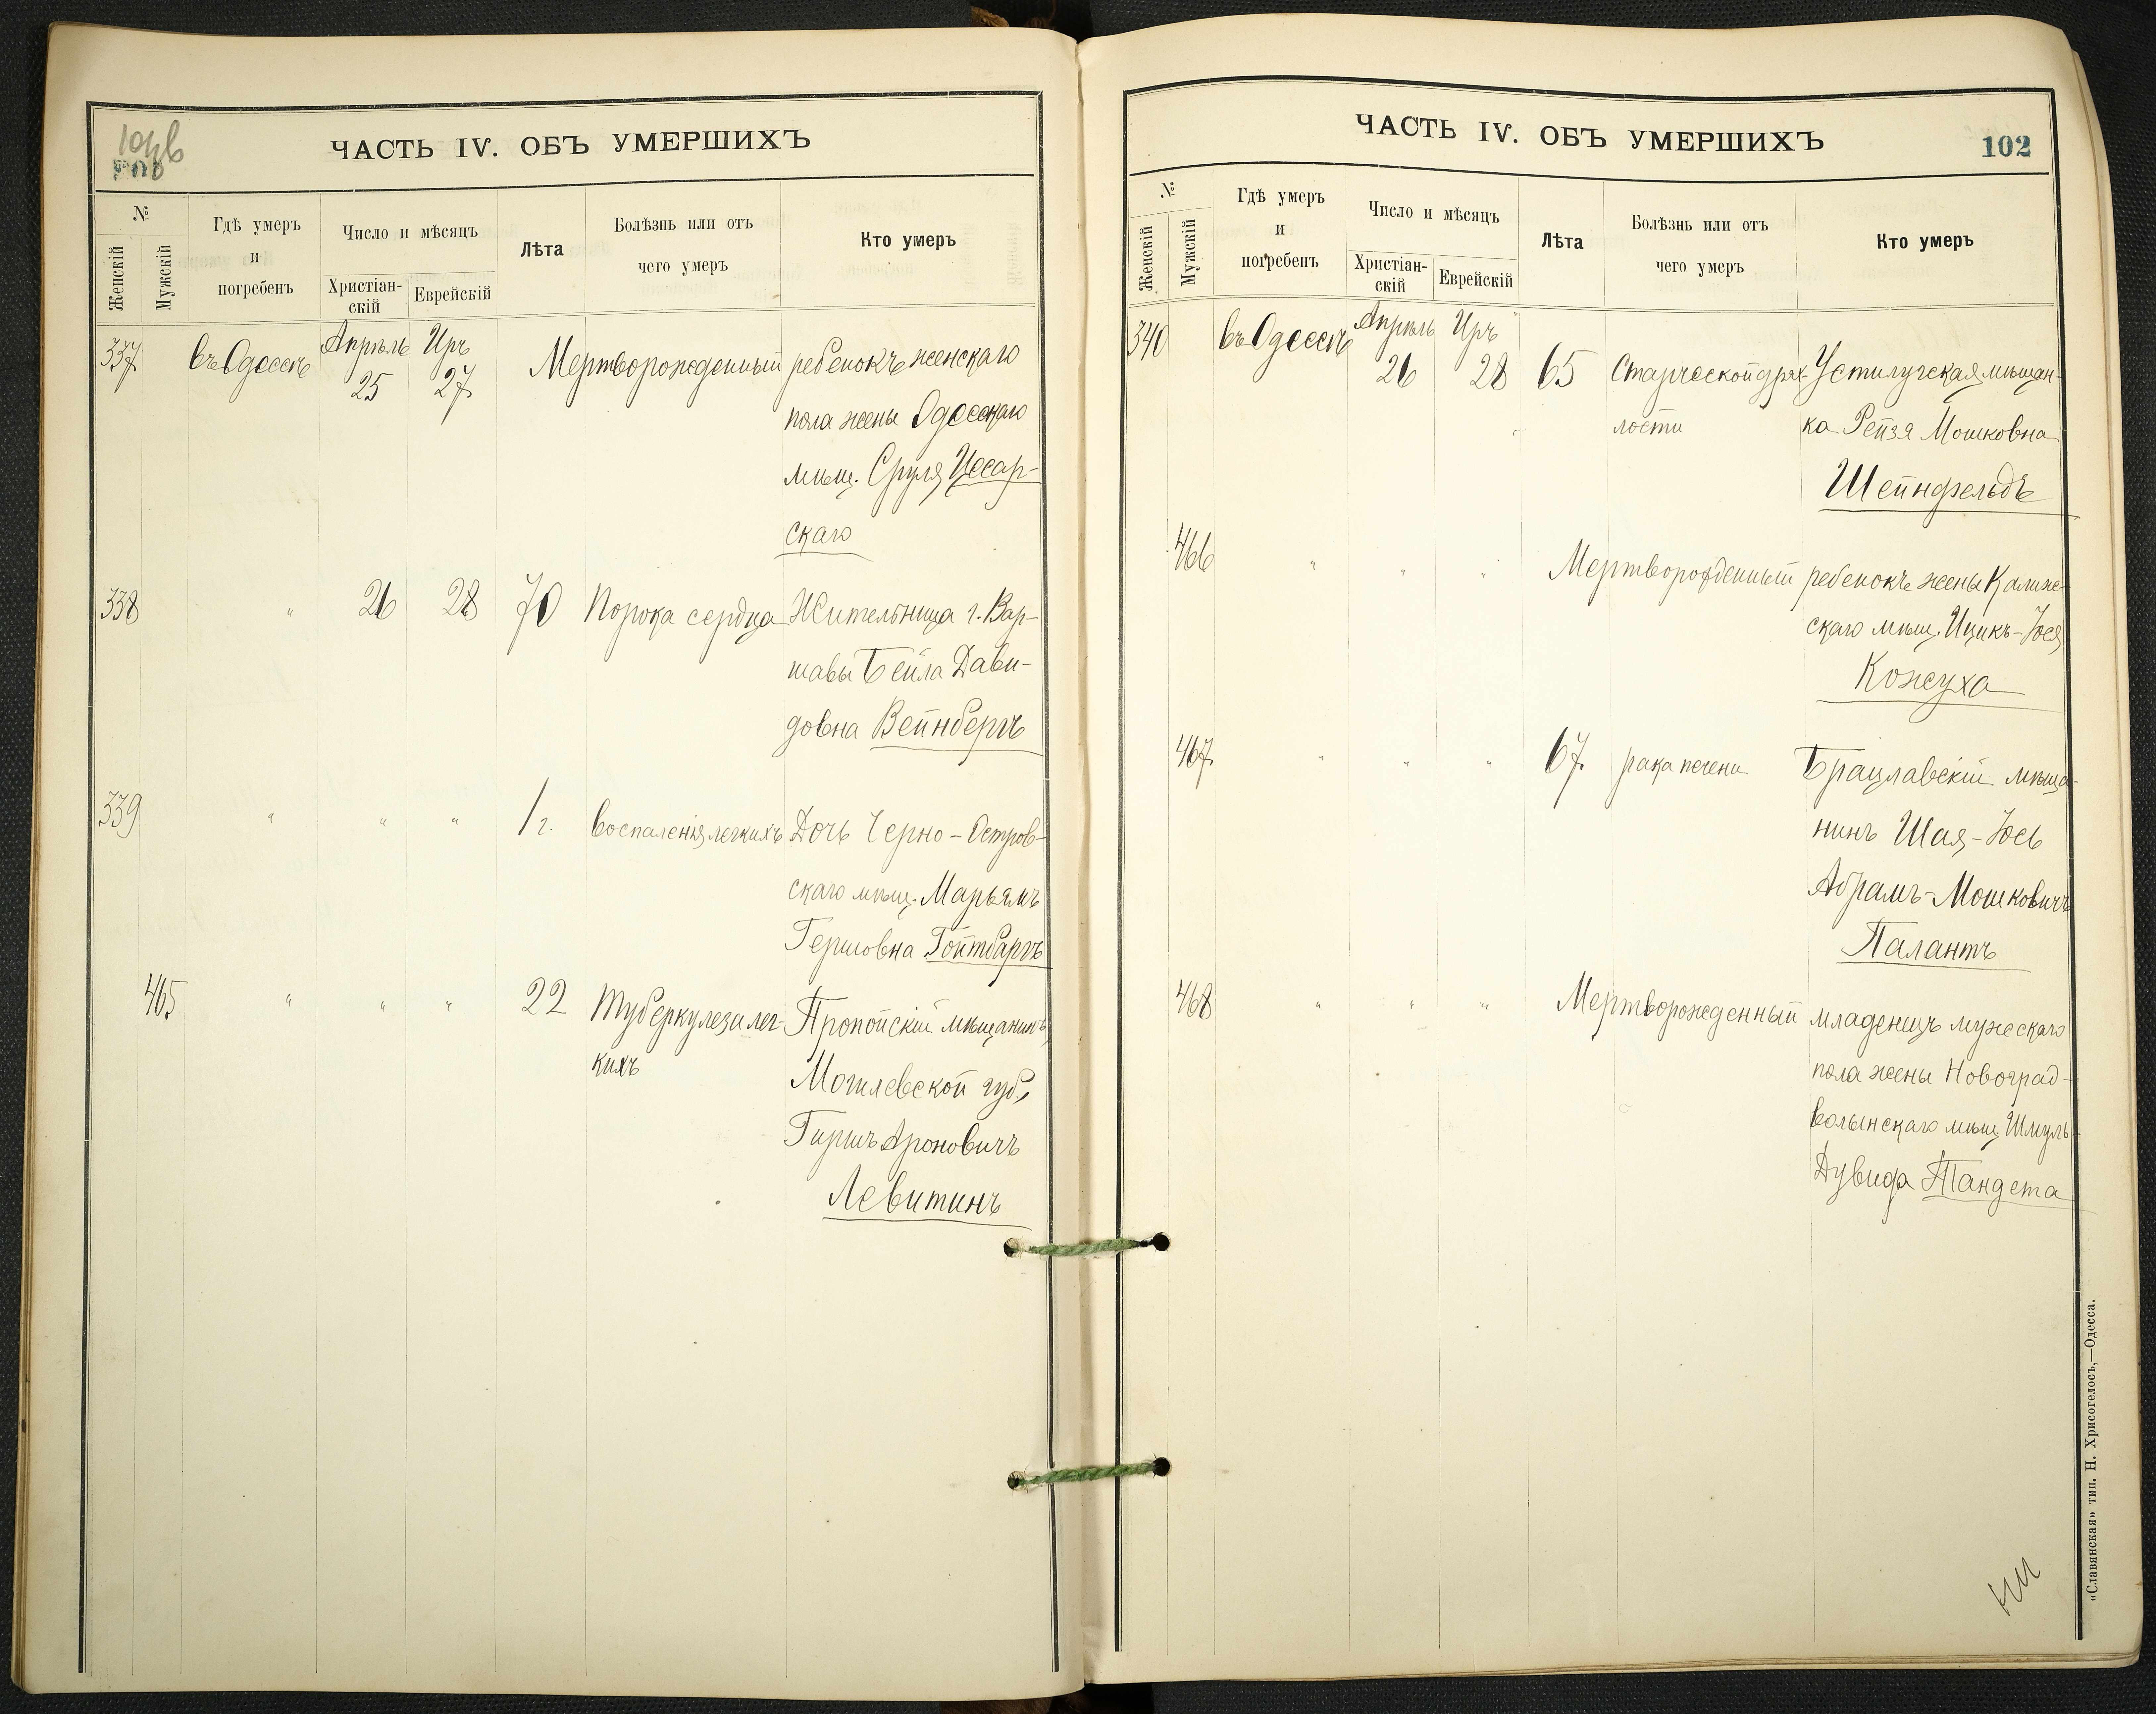 ЧАСТЬ IV. ОБЪ УМЕРШИХЪ
№
Женскій
Мужскій
Гдѣ умеръ
и
погребенъ
Число и мѣсяцъ
Христіан-
скій
Еврейскій
Лѣта
Болѣзнь или отъ
чего умеръ
Кто умеръ
337 въ Одессѣ Апрѣль 25 Иръ 27 Мертворожденный ребенокъ женскаго
пола жены Одесскаго
мѣщ. Сруля Цесар-
скаго
338 " 26 28 70 Порока сердца Жительница г. Вар-
шавы Бейла Дави-
довна Вейнбергъ
339 " " " 1 г. Воспаленія легкихъ Дочь Черно-Остров-
скаго мѣщ. Марьямъ
Гершовна Гойтбаргъ
465 " " " 22 Туберкулеза лег- Пропойскій мѣщанинъ,
кихъ Могилевской губ.,
Гиршъ Ароновичъ
Левитинъ
ЧАСТЬ IV. ОБЪ УМЕРШИХЪ
102
№
Женскій
Мужскій
Гдѣ умеръ
и
погребенъ
Число и мѣсяцъ
Христіан-
скій
Еврейскій
Лѣта
Болѣзнь или отъ
чего умеръ
Кто умеръ
340 въ Одессѣ Апрѣль 26 Иръ 28 65 Старческой дрях- Устилугская мѣщан-
лости ка Рейзя Мошковна
Шейнфельдъ
466 " " " Мертворожденный ребенокъ жены Калиж-
скаго мѣщ. Ицикъ-Іося
Кожуха
467 " " " 67 рака печени Брацлавскій мѣща-
нинъ Шая-Іось
Абрамъ-Мошковичъ
Палантъ
468 " " " Мертворожденный младенецъ мужескаго
пола жены Новоград-
волынскаго мѣщ. Шмуль-
Дувида Тандета
«Славянская» тип. Н. Хрисогелосъ,—Одесса.